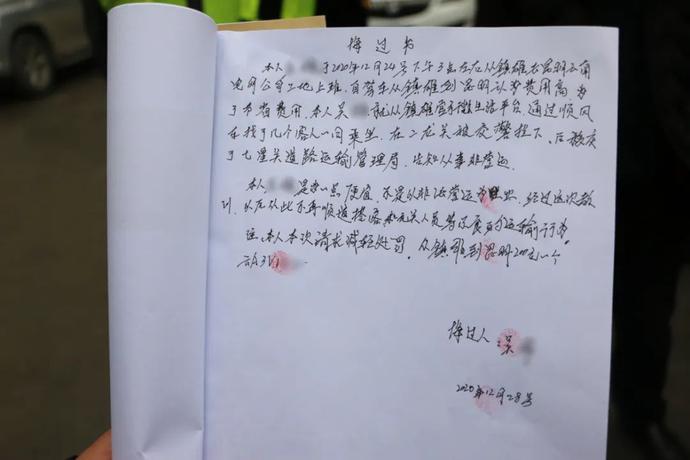 悔过书
本人 于2020年12月24号下午3点左右从镇雄去昆明云南
电网公司工地上班，自驾车从镇雄到昆明认为费用高，为
了节省费用，本人吴 就从镇雄 微生活平台，通过顺风
车找了几个客人一同乘坐，在二龙关被交警拦下、后移交
于七星关道路运输管理局，告知从事非营运。
本人 是 点便宜，不是从非法营运 ，经过这次教
训，从今以后从此不再顺道搭客，和 人员等不良 运输行为
运。本人本次请求减轻处罚。从镇雄到昆明200元一个
悔过人：吴
2020年12月28号